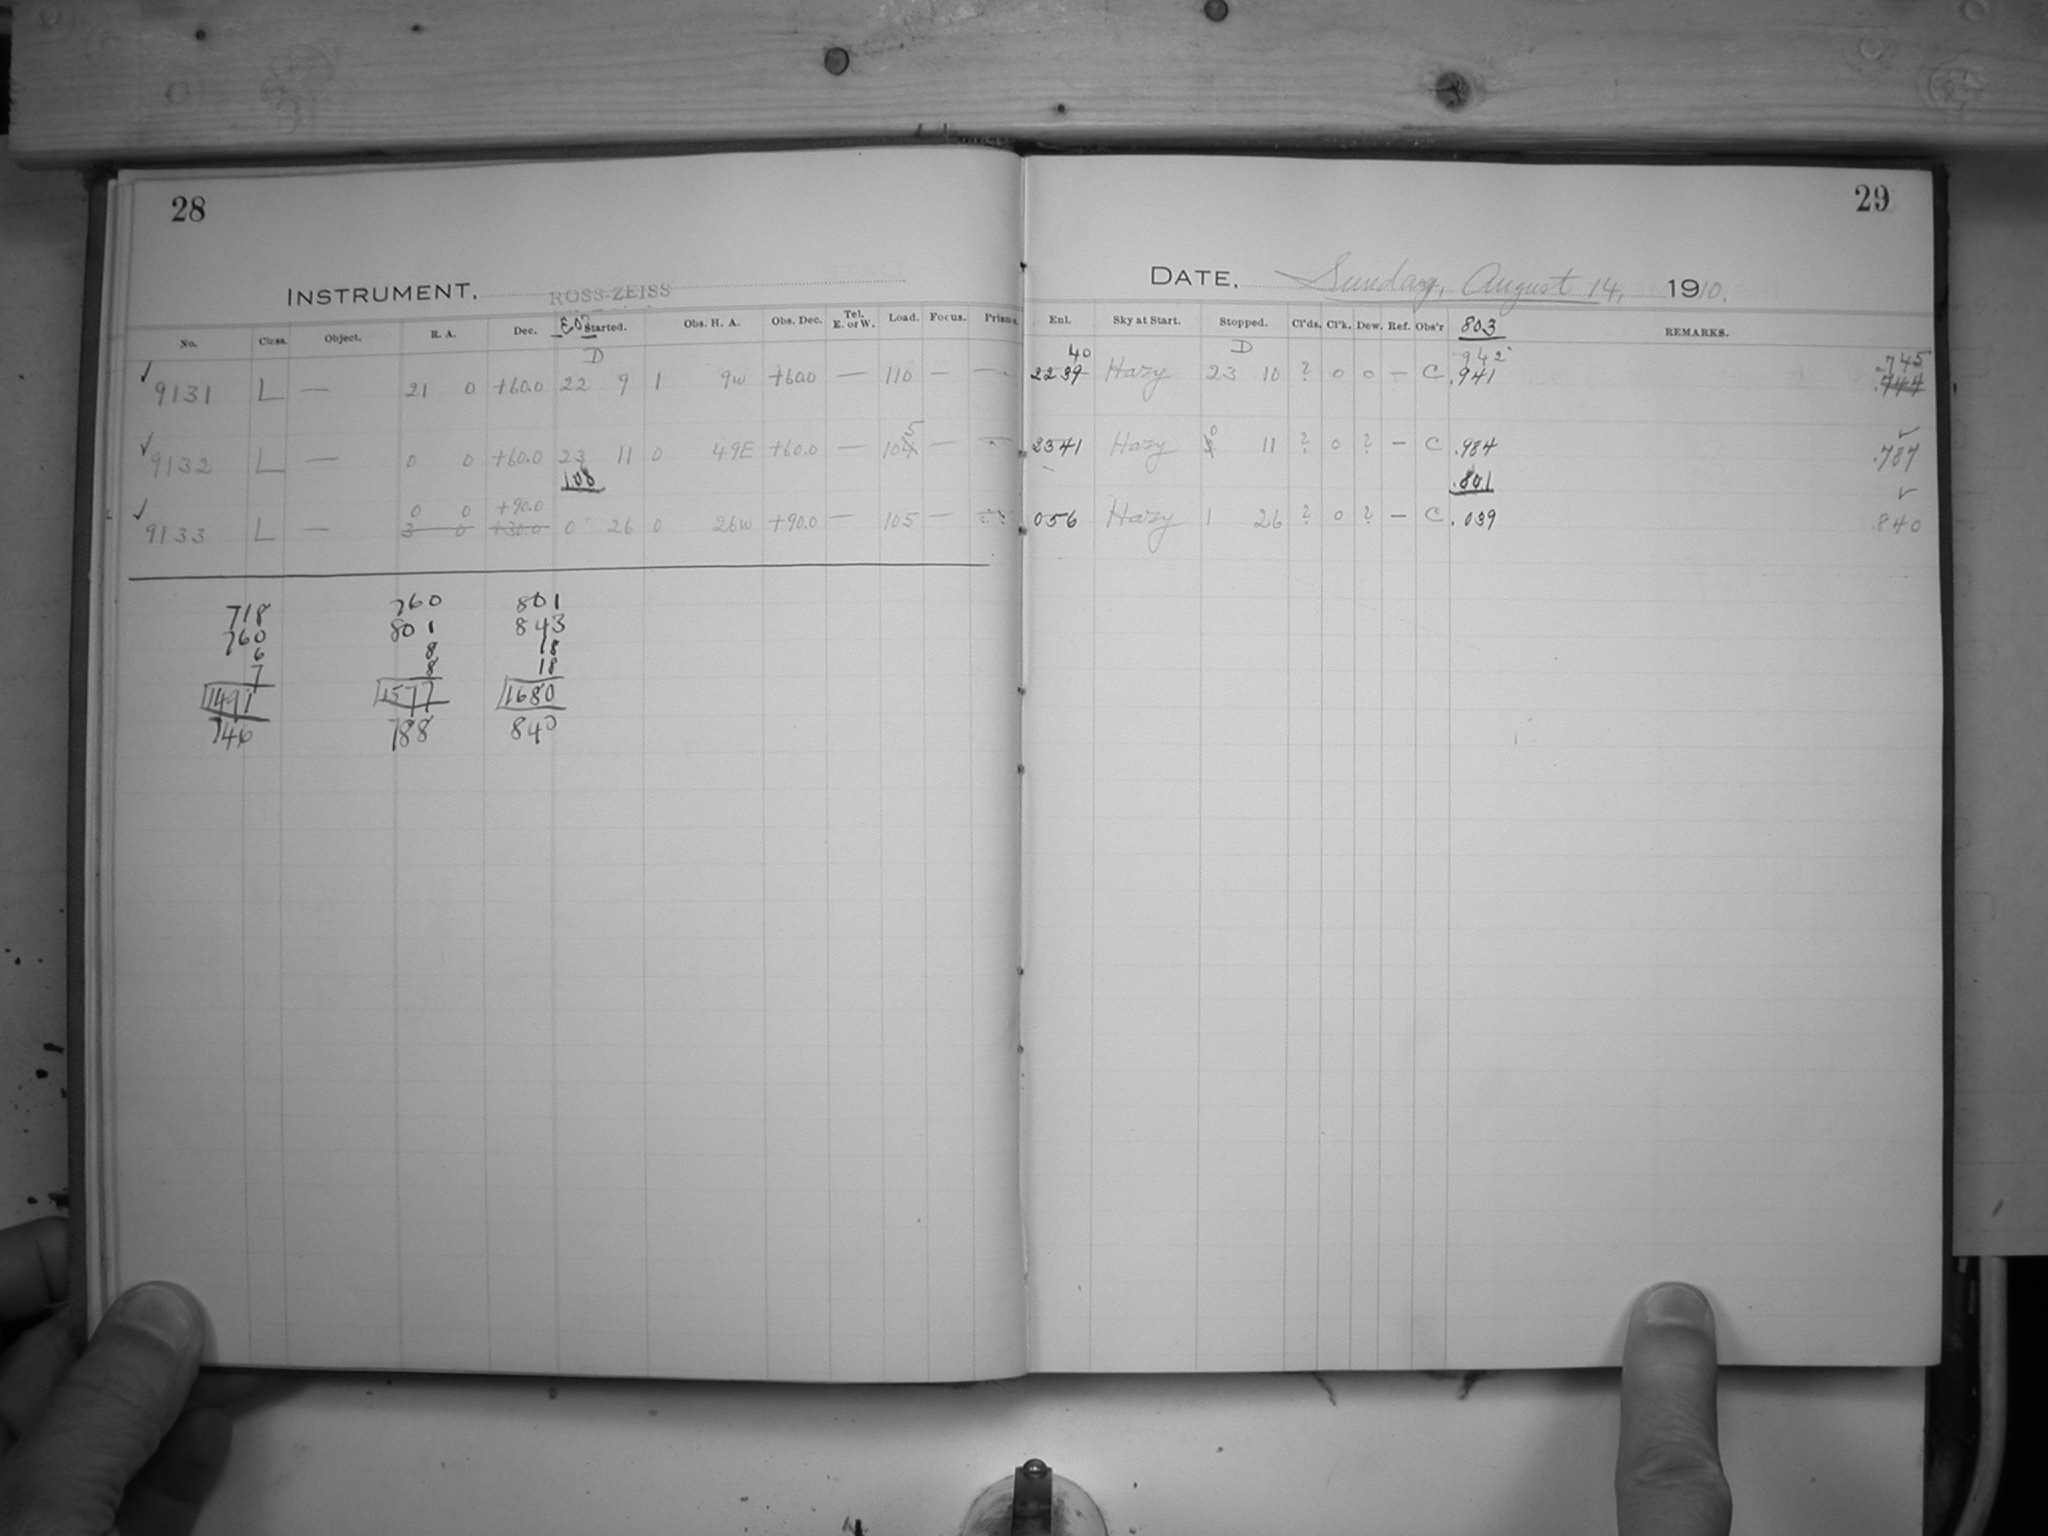 28
INSTRUMENT. ROSS-ZEISS
No. Class. Object. R. A. Dec. Started. Obs. H. A. Obs. Dec. Tel. E. or W. Load. Focus. Prisms.
D
✓ 9131 L — 21 0 +60.0 22 9 1 9w +60.0 — 110 — —
5
✓ 9132 L — 0 0 +60.0 23 11 0 49E +60.0 — 104 — —
100
0 0 +90.0
✓ 9133 L — 3 0 +30.0 0 26 0 26w +90.0 — 105 —
718 760 801
760 801 843
6 8 18
7 8 18
1491 1577 1680
746 788 840
29
DATE, Sunday, August 14, 1910.
Enl. Sky at Start. Stopped. Cl'ds. Cl'k. Dew. Ref. Obs'r 803 REMARKS.
40 D 942 .745
2239 Hazy 23 10 ? 0 0 — C .941 .744
0 ✓
2341 Hazy 11 ? 0 ? — C .984 .787
.801 ✓
056 Hazy 1 26 ? 0 ? — C .039 .840